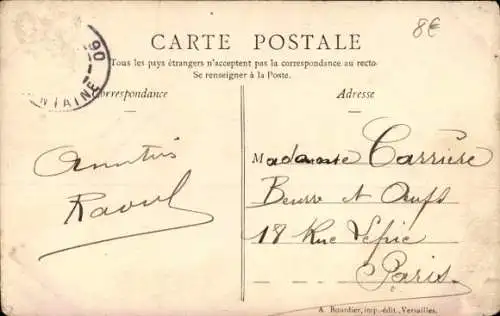 8€
CARTE POSTALE
Tous les pays étrangers n'acceptent pas la correspondance au recto.
Se renseigner à la Poste.
Correspondance
Adresse
Amitiés
Raoul
Madame Carrière
Beurre et Oeufs
18 Rue Lepic
Paris
A. Bourdier, imp.-édit., Versailles.
06
NTAINE